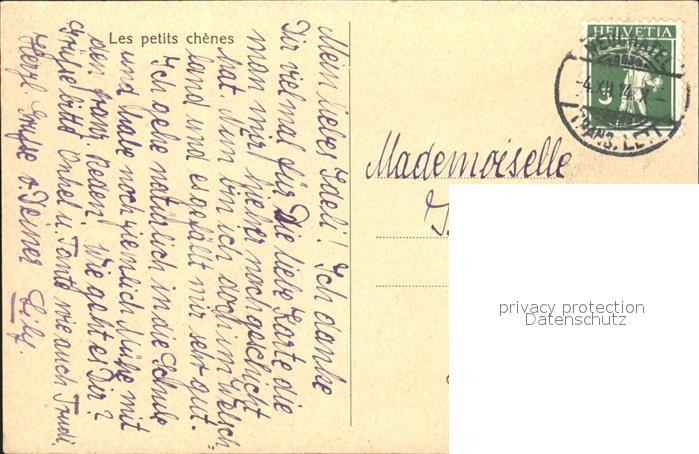 Les petits chènes
Mein liebes Gaeli! Ich danke
Dir vielmal für Die liebe Karte die
man mir hieher nachgeschickt
hat. Nun bin ich doch im Welsch=
land und es gefällt mir sehr gut.
Ich gehe natürlich in die Schule
und habe noch ziemlich Mühe mit
den franz. Reden. Wie geht es Dir?
Grüsse bitte Onkel u. Tante wie auch Trudi.
Herzl. Grüsse v. Deiner Lily.
HELVETIA
4. XII. 14.
Mademoiselle
privacy protection
Datenschutz